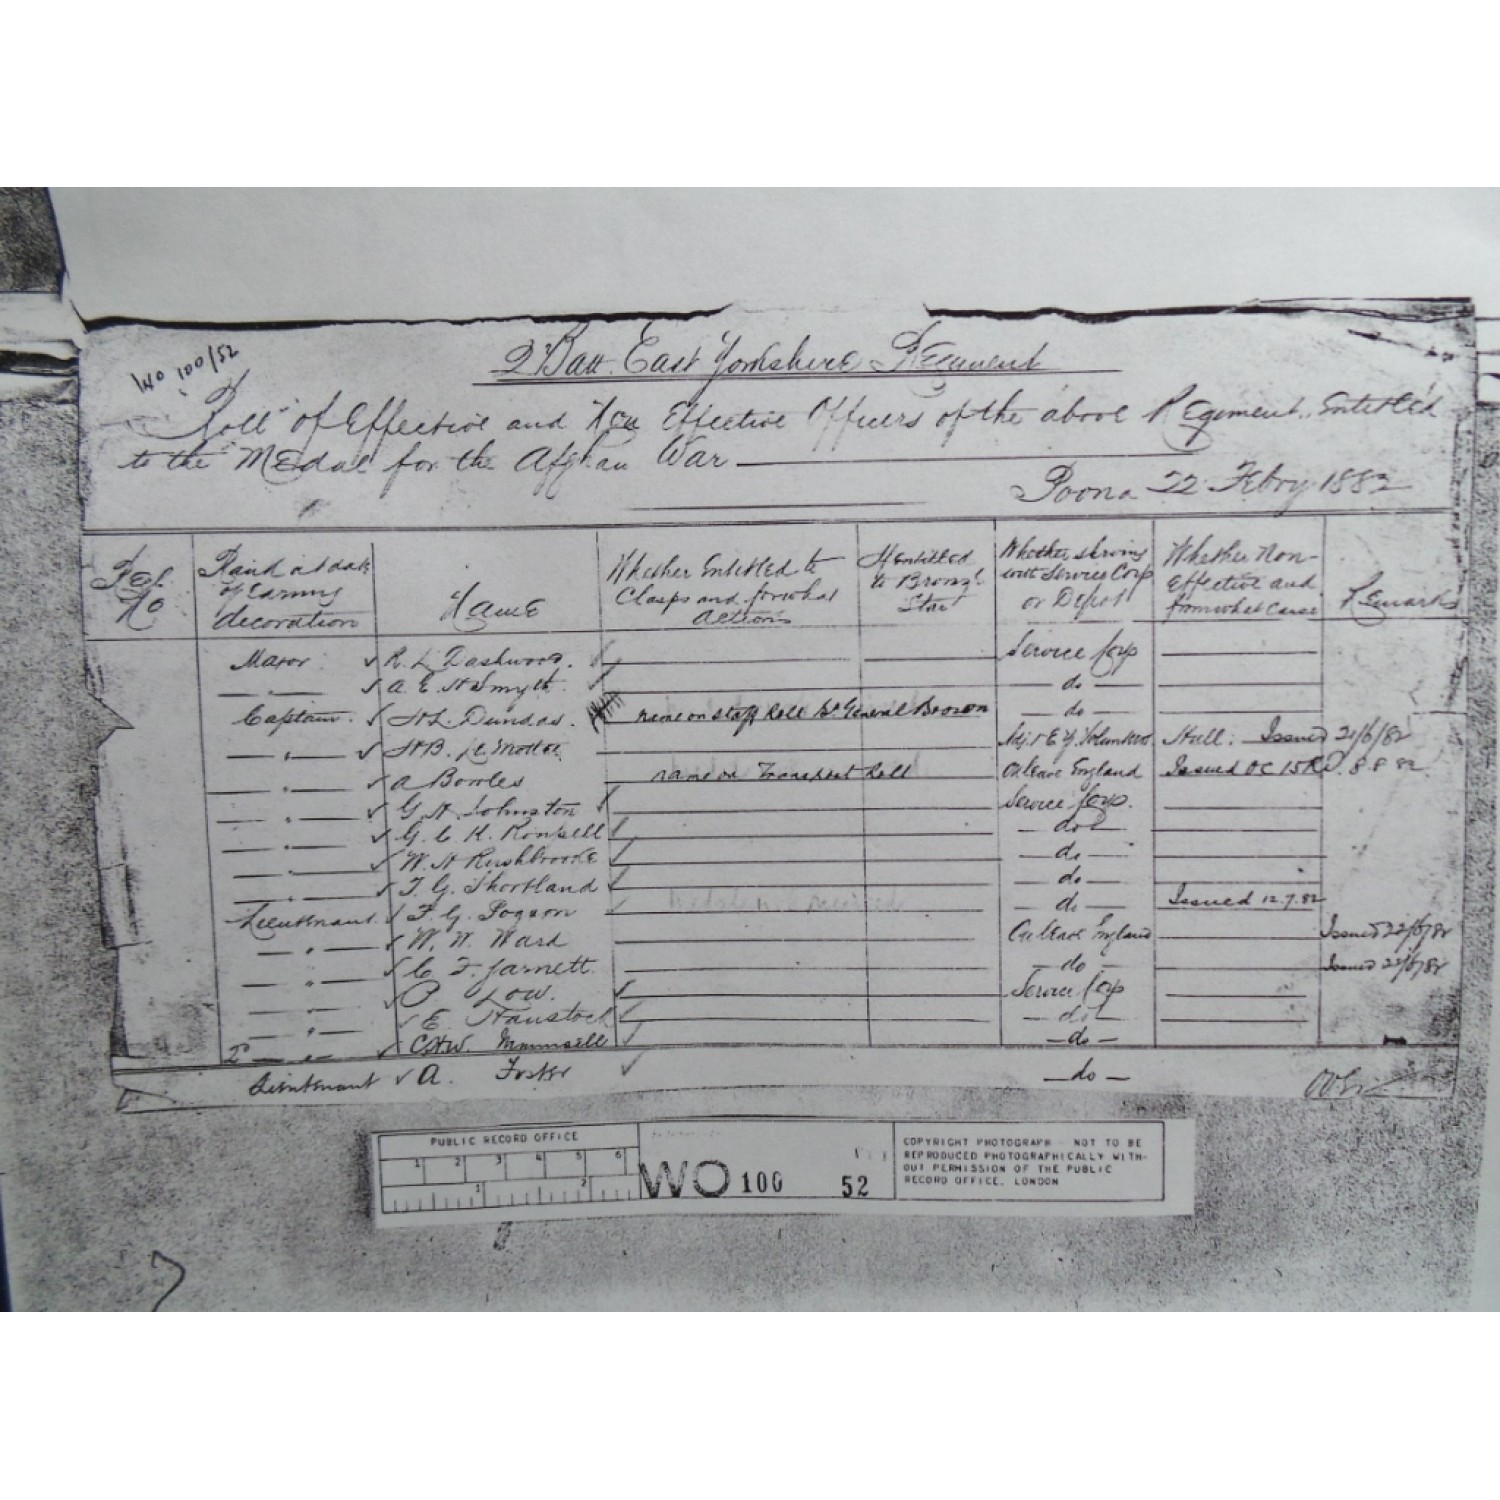 WO 100/52
2d Batt. East Yorkshire Regiment
Roll of Effective and Non Effective Officers of the above Regiment, Entitled
to the Medal for the Afghan War
Poona 22 Febry 1882
Regl. No
Rank at date of Earning decoration
Name
Whether Entitled to Clasps and for what Actions
If Entitled to Bronze Star
Whether serving with Service Corps or Depot
Whether Non-Effective and from what Cause
Remarks
Major ✓ R. L. Dashwood. ✓ Service Corps
— " — ✓ A. E. H. Smyth ✓ — do —
Captain. ✓ H. L. Dundas. name on Staff Roll Br. General Brown — do —
— " — ✓ H. B. Adjt E. Y. Volunteers Hull. Issued 21/6/82
— " — A Bowles name on Transport Roll On leave England Issued OC 15 R.D. 8.8.82
— " — ✓ G. H. Johnston ✓ Service Corps.
— " — ✓ G. C. H. ✓ — do —
— " — ✓ W. H. Rushbrooke ✓ — do —
— " — ✓ T. G. Shortland ✓ — do —
Lieutenant ✓ F. G. Pogson ✓ — do — Issued 12.7.82
— " — ✓ W. W. Ward On leave England Issued 22/6/82
— " — ✓ C. F. Jarnett. — do — Issued 22/6/82
— " — ✓ P Low. ✓ Service Corps
— " — ✓ E. ✓ — do —
2d — " — ✓ C.H.W. Maunsell ✓ — do —
Lieutenant ✓ A. Foster ✓ — do —
PUBLIC RECORD OFFICE
1 2 3 4 5 6
1 2
WO 100 52
COPYRIGHT PHOTOGRAPH - NOT TO BE
REPRODUCED PHOTOGRAPHICALLY WITH-
OUT PERMISSION OF THE PUBLIC
RECORD OFFICE, LONDON